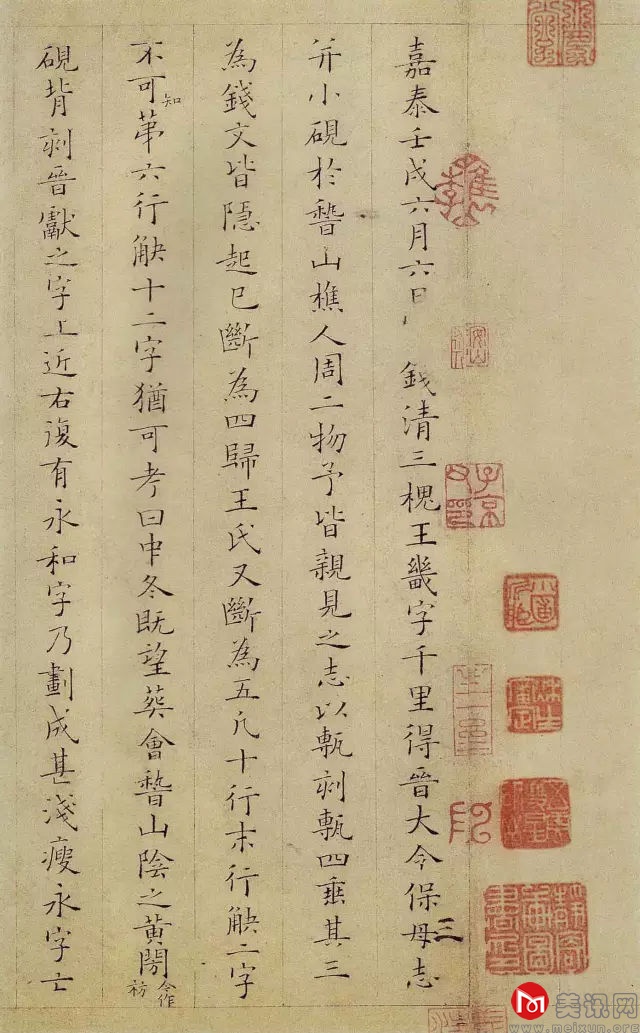 嘉泰壬戌六月六日錢清三槐王畿字千里得晉大令保母志三
并小硯於稽山樵人周二物予皆親見之志以甎刻甎四垂其三
為錢文皆隱起已斷為四歸王氏又斷為五凡十行末行缺二字
不可知第六行缺十二字猶可考曰中冬既望葬會稽山陰之黃閍
今作祊
硯背刻晉獻之字上近右復有永和字乃劃成甚淺瘦永字亡
美讯网
www.meixun.org